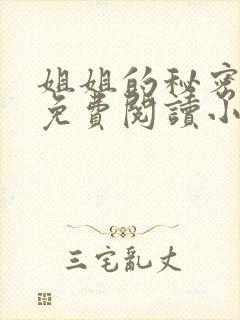 姐姐的秘密
免費閱讀小
三宅亂丈